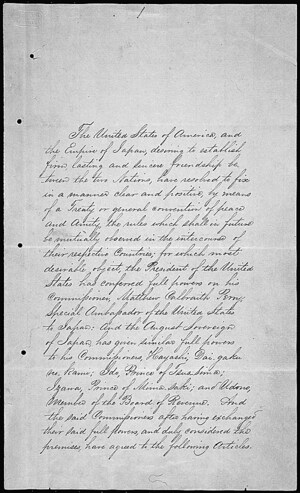 1
The United States of America, and
the Empire of Japan, desiring to establish
firm lasting and sincere friendship be
tween the two Nations, have resolved to fix
in a manner clear and positive, by means
of a Treaty or general convention of peace
and Amity, the rules which shall in future
be mutually observed in the intercourse of
their respective Countries; for which most
desirable object, the President of the United
States has conferred full powers on his
Commissioner, Matthew Calbraith Perry,
Special Ambassador of the United States
to Japan: And the August Sovereign
of Japan, has given similar full powers
to his Commissioners, Hayashi, Dai-gaku
no-kami; Ido, Prince of Tsus-Sima;
Izawa, Prince of Mima-saki; and Udono,
Member of the Board of Revenue. And
the said Commissioners after having exchanged
their said full powers, and duly considered the
premises, have agreed to the following Articles.